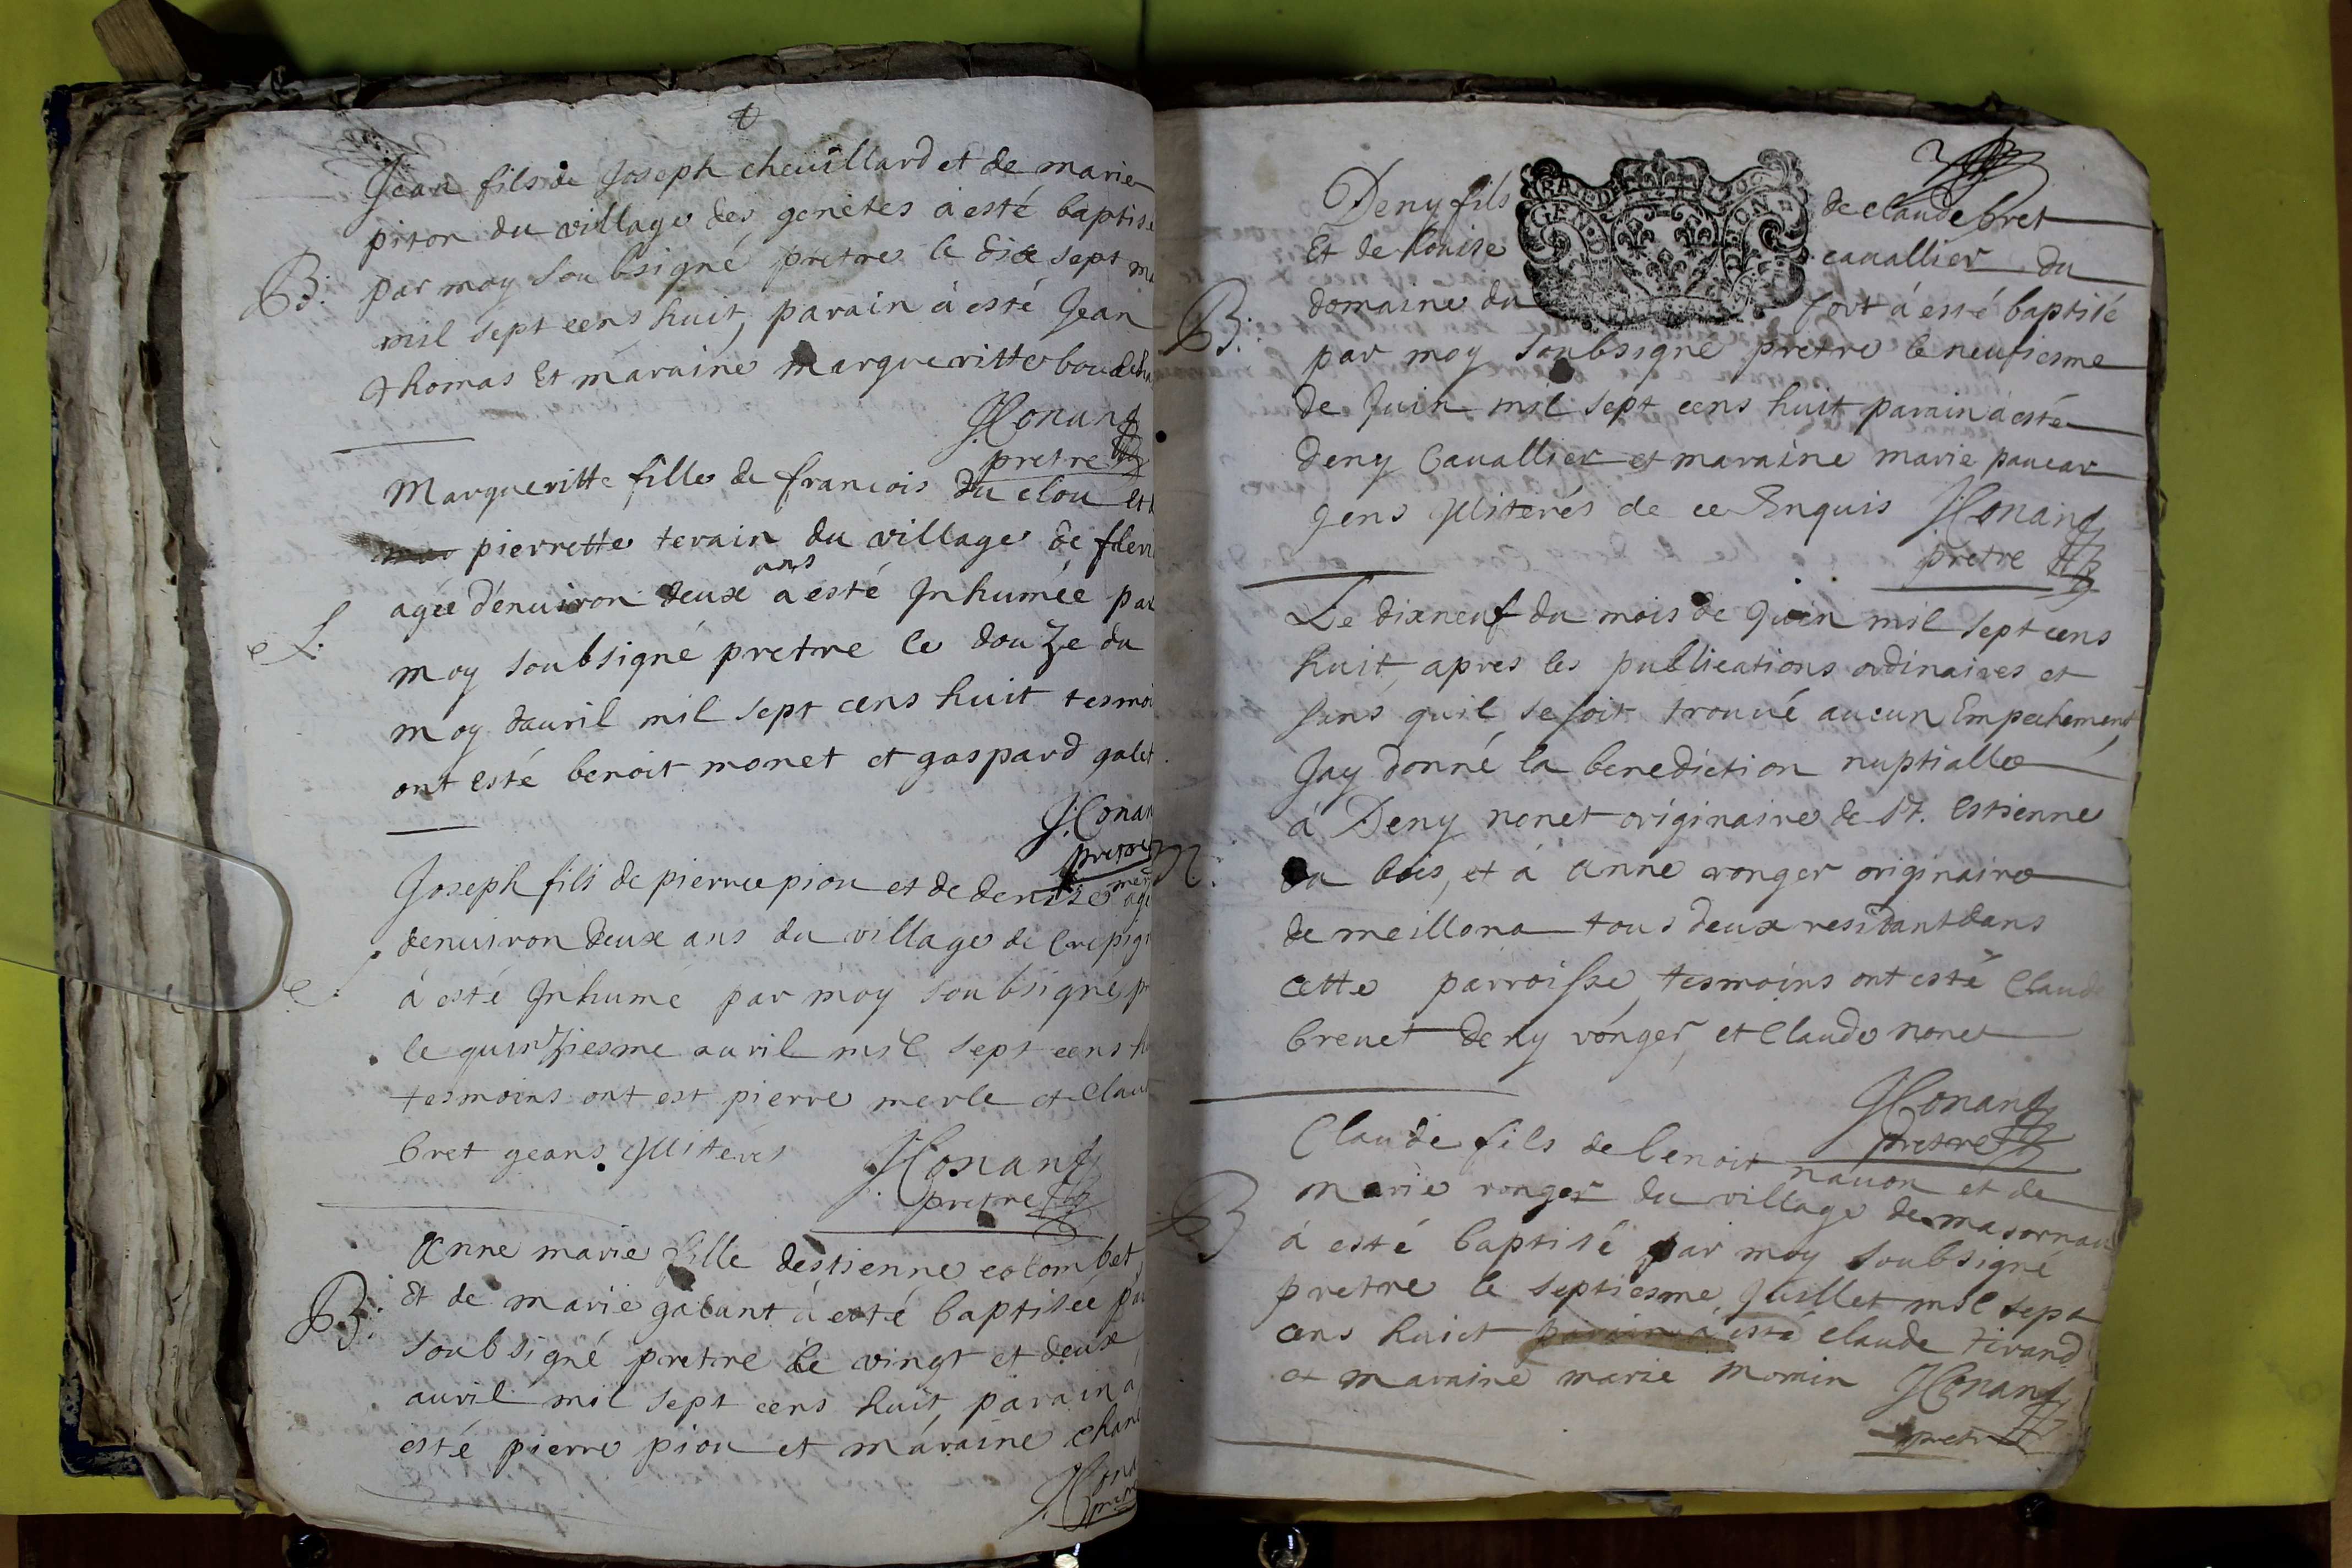 Jean fils de Joseph cheuillard et de marie
piron du village des genetes à esté baptisé
B. par moy soubsigné pretre le dix sept
mil sept cens huit, parain à esté Jean
thomas Et maraine margueritte
J. Conand
pretre
Margueritte fille de francois du clou et
pierrette terain du village de
agée d'enuiron deux ans a esté Inhumée par
moy soubsigné pretre le douze du
moy dauril mil sept cens huit tesmoi
ont esté benoit monet et gaspard galet
J. Conan
pretre
Joseph fils de pierre piou et de denise agé
denuiron deux ans du village de
à esté Inhumé par moy soubsigné pr
le quinziesme auril mil sept cens
tesmoins ont est pierre merle et Claud
bret geans Illiterés
J. Conand
pretre
Anne marie fille destienne colombet
B. Et de marie galant à esté baptisée par
soubsigné pretre le vingt et deux
auril mil sept cens huit, parain à
esté pierre piou et maraine
J. Cona
pretre
GEN D
Deny fils de claude bret
Et de louise cauallier du
B. domaine du fort à esté baptisé
par moy soubsigné pretre le neufiesme
de Juin mil sept cens huit parain à esté
deny Cauallier et maraine marie paucar
gens Illiterés de ce Enquis J. Conand
pretre
Le dixneuf du mois de Juin mil sept cens
huit, apres les publications ordinaires et
sans quil se soit trouué aucun Empechement
Jay donné la benediction nuptialle
à Deny nonet originaire de St. Estienne
du bois, et à anne ronger originaire
de meillona tous deux residant dans
cette parroisse, tesmoins ont esté Claude
breuet deny ronger, et Claude nonet
J. Conand
pretre
Claude fils de benoit nauon et de
B marie ronger du village de
à esté baptisé par moy soubsigné
pretre le septiesme Juillet mil sept
cens huict parain à esté claude tirand
et maraine marie momin J. Conand
pretre